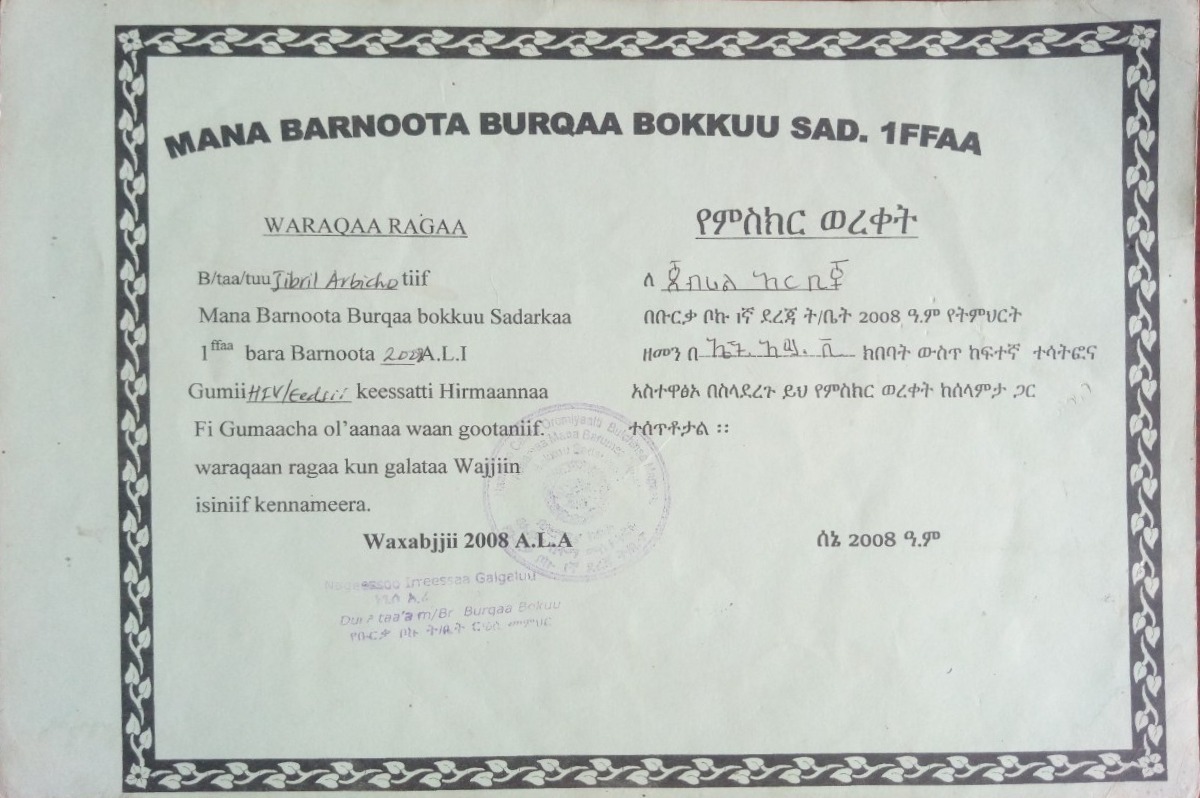 MANA BARNOOTA BURQAA BOKKUU SAD. 1FFAA
WARAQAA RAGAA
B/taa/tuu Jibril Arbicho tiif
Mana Barnoota Burqaa bokkuu Sadarkaa
1ffaa bara Barnoota 2008 A.L.I
Gumii HIV/Eedsii keessatti Hirmaannaa
Fi Gumaacha ol’aanaa waan gootaniif.
waraqaan ragaa kun galataa Wajjiin
isiniif kennameera.
Waxabjjii 2008 A.L.A
የምስክር ወረቀት
ለ ጀብሪል ኣርቢቾ
በቡርቃ ቦኩ ፩ኛ ደረጃ ት/ቤት 2008 ዓ.ም የትምህርት
ዘመን በ ኤች.ኣይ.ቪ ክበባት ውስጥ ከፍተኛ ተሳትፎና
አስተዋፅኦ በስላደረጉ ይህ የምስክር ወረቀት ከሰላምታ ጋር
ተሰጥቶታል ፡፡
ሰኔ 2008 ዓ.ም
Irreessaa Galgeluu
Dura taa'a m/Br Burqaa Bokuu
የቡርቃ ቦኩ ት/ቤት ርዕሰ መምህር